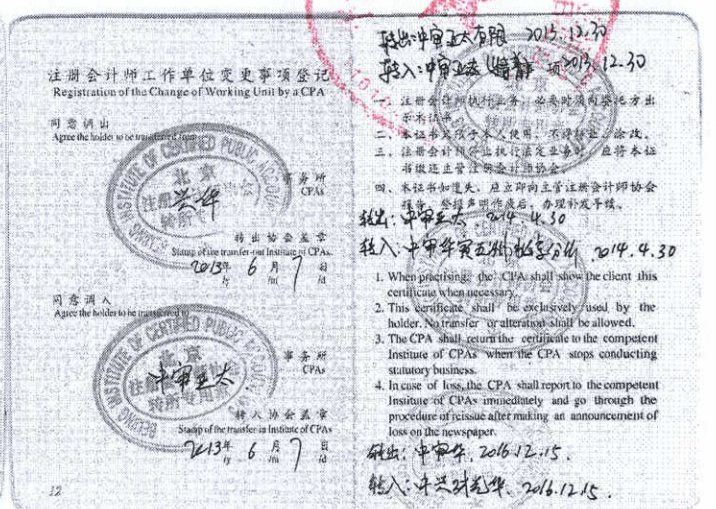 注册会计师工作单位变更事项登记
Registration of the Change of Working Unit by a CPA
同意调出
Agree the holder to be transferred from
BEIJING INSTITUTE OF CERTIFIED PUBLIC
北京
兴华
转所专用章
事务所
CPAs
转出协会盖章
Stamp of the transfer-out Institute of CPAs
2013年 6月 7日
/y /m /d
同意调入
Agree the holder to be transferred to
BEIJING INSTITUTE OF CERTIFIED PUBLIC
北京
中审亚太
转所专用章
事务所
CPAs
转入协会盖章
Stamp of the transfer-in Institute of CPAs
2013年 6月 7日
/y /m /d
12
转出:中审亚太有限 2013.12.30
转入:中审亚太 2013.12.30
一、注册会计师执行业务,必要时须向委托方出
示本证书。
二、本证书只限于本人使用,不得转让、涂改。
三、注册会计师停止执行法定业务时,应将本证
书缴还主管注册会计师协会。
四、本证书如遗失,应立即向主管注册会计师协会
报告,登报声明作废后,办理补发手续。
转出:中审亚太 2014.4.30
转入:中审华寅五洲 2014.4.30
1. When practising, the CPA shall show the client this
certificate when necessary.
2. This certificate shall be exclusively used by the
holder. No transfer or alteration shall be allowed.
3. The CPA shall return the certificate to the competent
Institute of CPAs when the CPA stops conducting
statutory business.
4. In case of loss, the CPA shall report to the competent
Institute of CPAs immediately and go through the
procedure of reissue after making an announcement of
loss on the newspaper.
转出:中审华 2016.12.15.
转入:中兴财光华 2016.12.15.